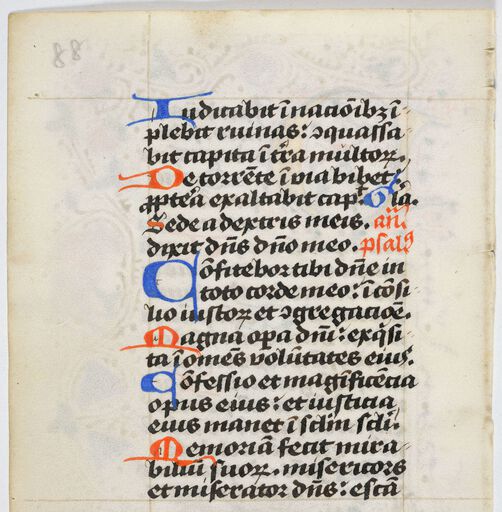 88
Iudicabit ī nacıōibȝ ī-
plebit ruinas: ɔquassa-
bit capita ī t̄ra multoꝝ.
De torrēte ī via bibet:
ꝓpt̄ea exaltabit capᵗ. Gl̄a.
Sede a dextris meis. an̄.
dixit dn̄s dn̄o meo. psalꝰ
Cōfitebor tibi dn̄e in
toto corde meo: ī cōsi-
lio iustoꝝ et ɔgregacıōe.
Magna oꝑa dn̄i: exq̇si-
ta ī om̄es volūtates eiuꝰ.
Cōfessio et magīficēcia
opus eius: et iusticia
eius manet ī sclm̄ scl̄i:
Memoriā fecit mira-
biliū suoꝝ. misericors
et miserator dn̄s: escā